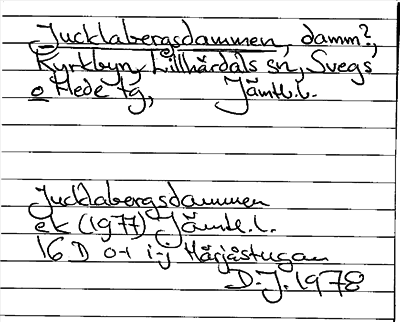 Jucklabergsdammen, damm?,
Kyrkbyn, Lillhärdals sn, Svegs
o Hede tg, Jämtl.l.
Jucklabergsdammen
ek (1977) Jämtl.l.
16 D 0-1 i-j Härjåstugan
D.J. 1978